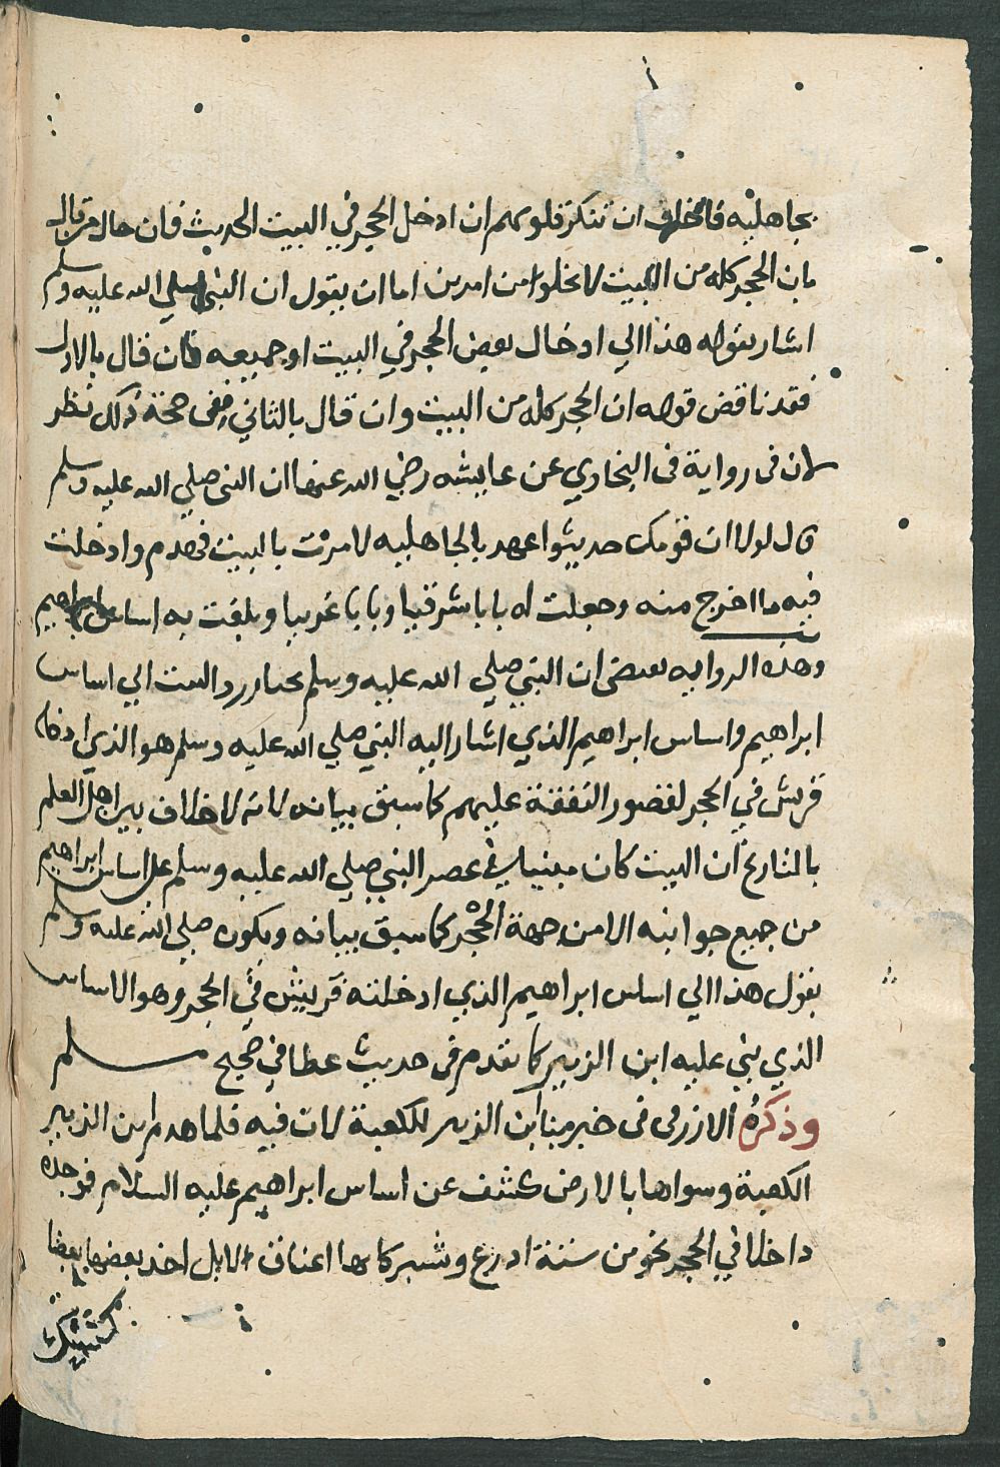 بجاهلية فاخاف ان تنكر قلوبهم ان ادخل الحجر في البيت الحديث فان حال من قال
بان الحجر كله من البيت لا يخلوا من امرين اما ان يقول ان النبي صلي الله عليه وسلم
اشار بقوله هذا الي ادخال بعض الحجر في البيت او جميعه فان قال بالاول
فقد ناقض قوله ان الحجر كله من البيت وان قال بالثاني ففي صحة ذلك نظر
لان في رواية في البخاري عن عايشه رضي الله عنها ان النبي صلي الله عليه وسلم
قال لولا ان قومك حديثوا عهد بالجاهليه لامرت بالبيت فهدم وادخلت
فيه ما اخرج منه وجعلت له بابا شرقيا وبابا غربيا وبلغت به اساس ابراهيم
وهذه الروايه تقتضي ان النبي صلي الله عليه وسلم رد البيت الي اساس
ابراهيم واساس ابراهيم الذي اشار اليه النبي صلي الله عليه وسلم هو الذي ادخله
قريش في الحجر لقصور النفقة عليهم كما سبق بيانه لانه لا خلاف بين اهل العلم
بالتاريخ ان البيت كان مبنيا في عصر النبي صلي الله عليه وسلم علي اساس ابراهيم
من جميع جوانبه الا من جهة الحجر كما سبق بيانه ويكون صلي الله عليه وسلم
بقول هذا الي اساس ابراهيم الذي ادخلته قريش في الحجر وهو الاساس
الذي بني عليه ابن الزبير كما تقدم في حديث عطا في صحيح مسلم
وذكره الازرقي في خبر بنا ابن الزبير للكعبة لان فيه فلما هدم ابن الزبير
الكعبة وسواها بالارض كشف عن اساس ابراهيم عليه السلام فوجده
داخلا في الحجر نحو من ستة اذرع وشبر كانها اعناق الابل اخذ بعضها بعضا
كتشبيك